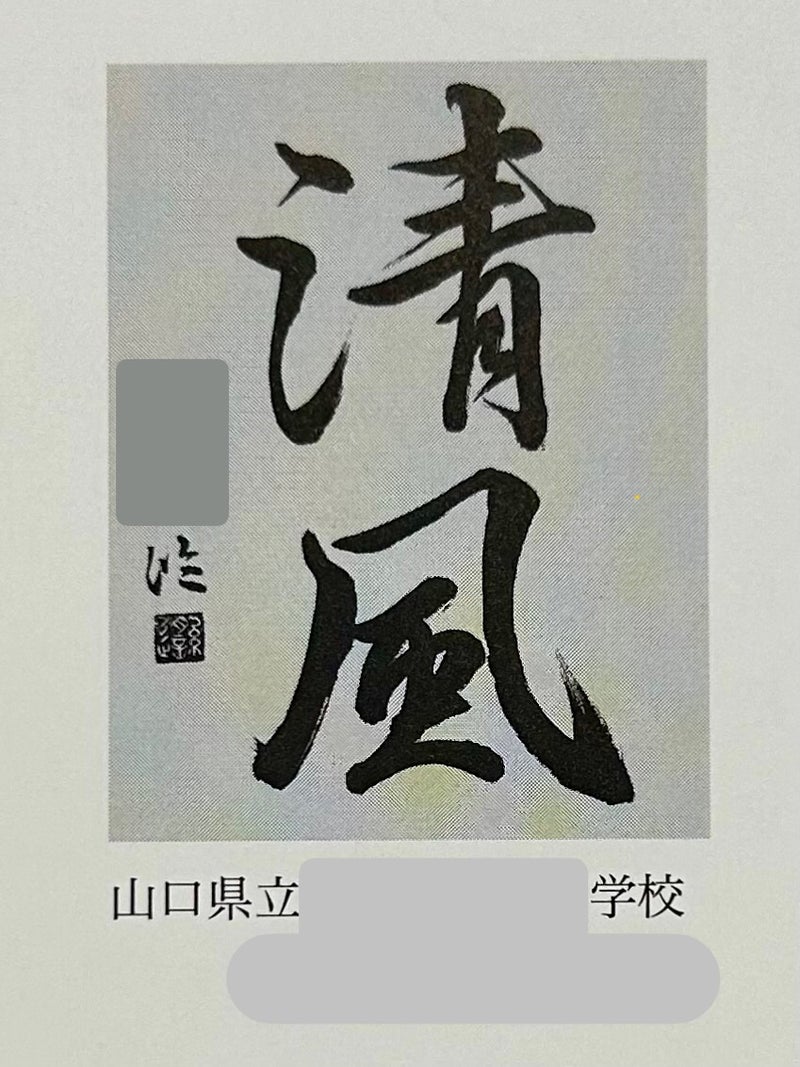 清風
山口県立
学校